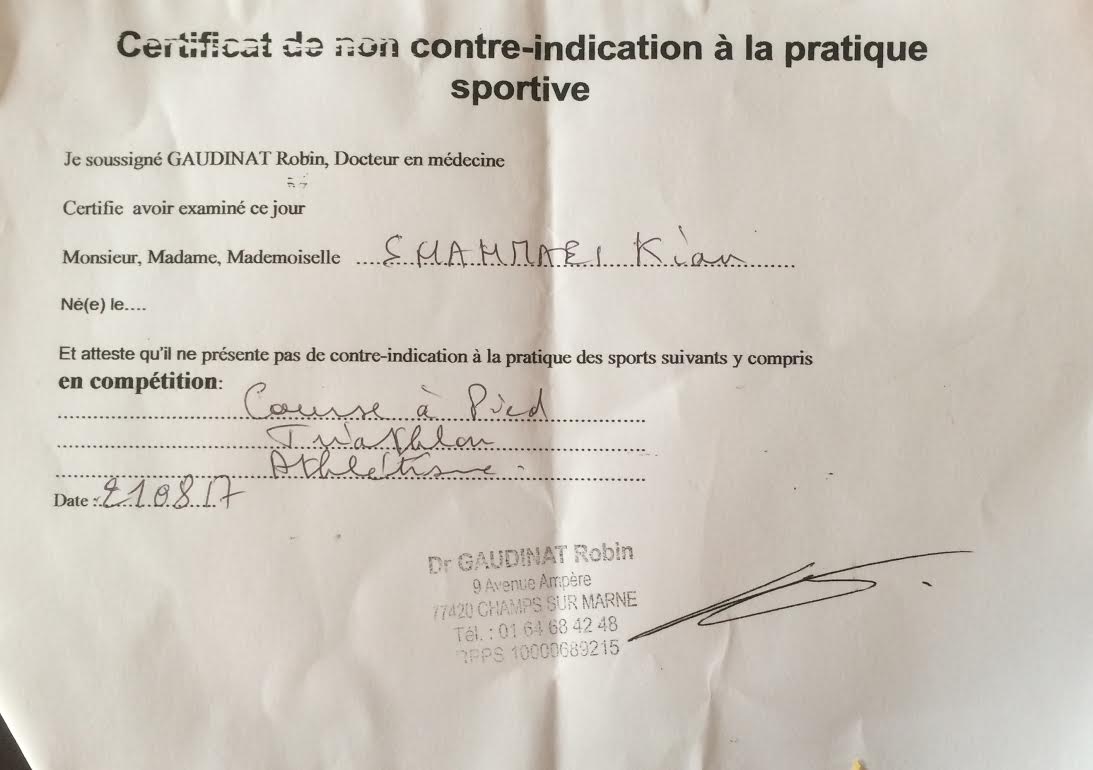 Certificat de non contre-indication à la pratique
sportive
Je soussigné GAUDINAT Robin, Docteur en médecine
Certifie avoir examiné ce jour
Monsieur, Madame, Mademoiselle ....SHAHMAEI Kian......
Né(e) le....
Et atteste qu'il ne présente pas de contre-indication à la pratique des sports suivants y compris
en compétition:
Course à Pied
Triathlon
Athlétisme.
Date :.210817
Dr GAUDINAT Robin
9 Avenue Ampère
77420 CHAMPS SUR MARNE
Tél. : 01 64 68 42 48
RPPS 10000689215